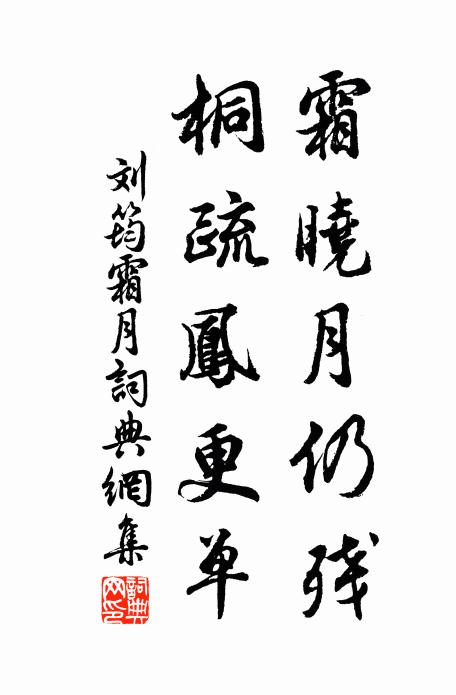 霜曉月仍残
桐疏鳳更单
刘筠霜月詞典網集
詞典网印